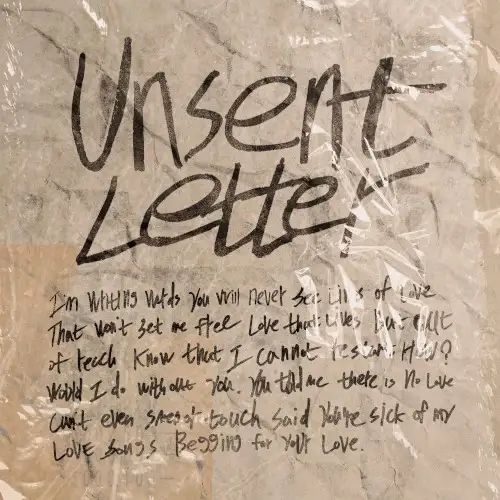 Unsent
Letter
I'm writing words you will never see Lines of Love
That won't set me free Love that Lives but out
of reach Know that I cannot How?
Would I do without you. You told me there is No Love
Can't even touch said You're sick of my
Love songs Begging for your Love.